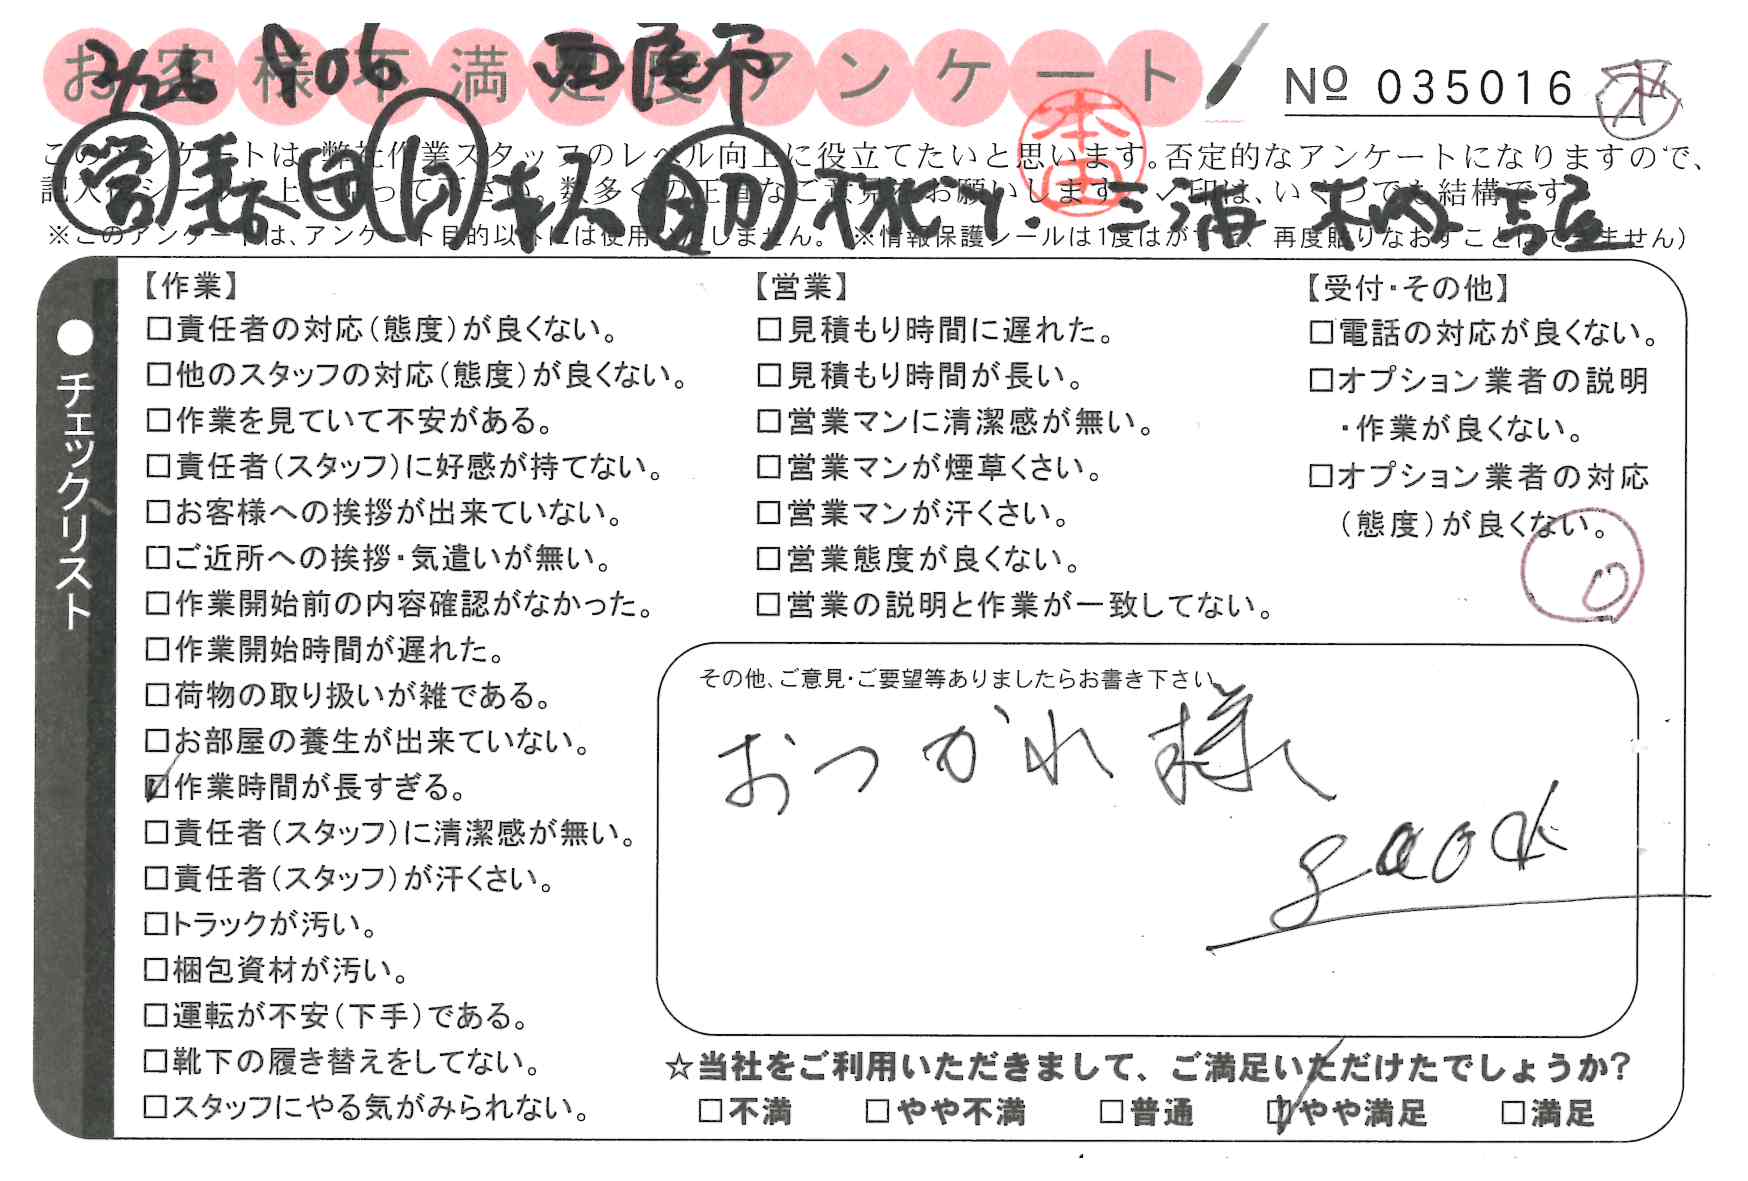 お客様不満足度アンケート
№ 035016
906
このアンケートは、弊社作業スタッフのレベル向上に役立てたいと思います。否定的なアンケートになりますので、
記入後シールを上に貼って下さい。数多くの正直なご意見をお願いします。✓印は、いくつでも結構です。
※このアンケートは、アンケート目的以外には使用いたしません。(※情報保護シールは1度はがすと、再度貼りなおすことはできません)
本田
三浦
●チェックリスト
【作業】
□責任者の対応(態度)が良くない。
□他のスタッフの対応(態度)が良くない。
□作業を見ていて不安がある。
□責任者(スタッフ)に好感が持てない。
□お客様への挨拶が出来ていない。
□ご近所への挨拶・気遣いが無い。
□作業開始前の内容確認がなかった。
□作業開始時間が遅れた。
□荷物の取り扱いが雑である。
□お部屋の養生が出来ていない。
☑作業時間が長すぎる。
□責任者(スタッフ)に清潔感が無い。
□責任者(スタッフ)が汗くさい。
□トラックが汚い。
□梱包資材が汚い。
□運転が不安(下手)である。
□靴下の履き替えをしてない。
□スタッフにやる気がみられない。
【営業】
□見積もり時間に遅れた。
□見積もり時間が長い。
□営業マンに清潔感が無い。
□営業マンが煙草くさい。
□営業マンが汗くさい。
□営業態度が良くない。
□営業の説明と作業が一致してない。
【受付・その他】
□電話の対応が良くない。
□オプション業者の説明
・作業が良くない。
□オプション業者の対応
(態度)が良くない。
その他、ご意見・ご要望等ありましたらお書き下さい。
おつかれ様
good
☆当社をご利用いただきまして、ご満足いただけたでしょうか?
□不満 □やや不満 □普通 ☑やや満足 □満足